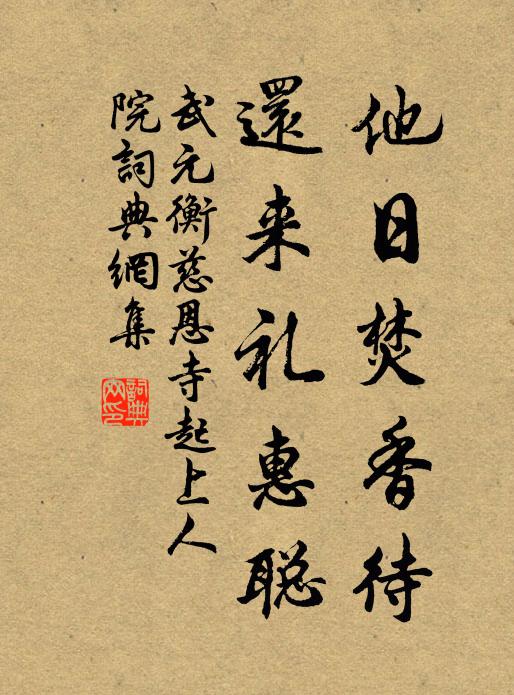 他日焚香待
還来礼惠聪
武元衡慈恩寺起上人
院詞典網集
詞典网印